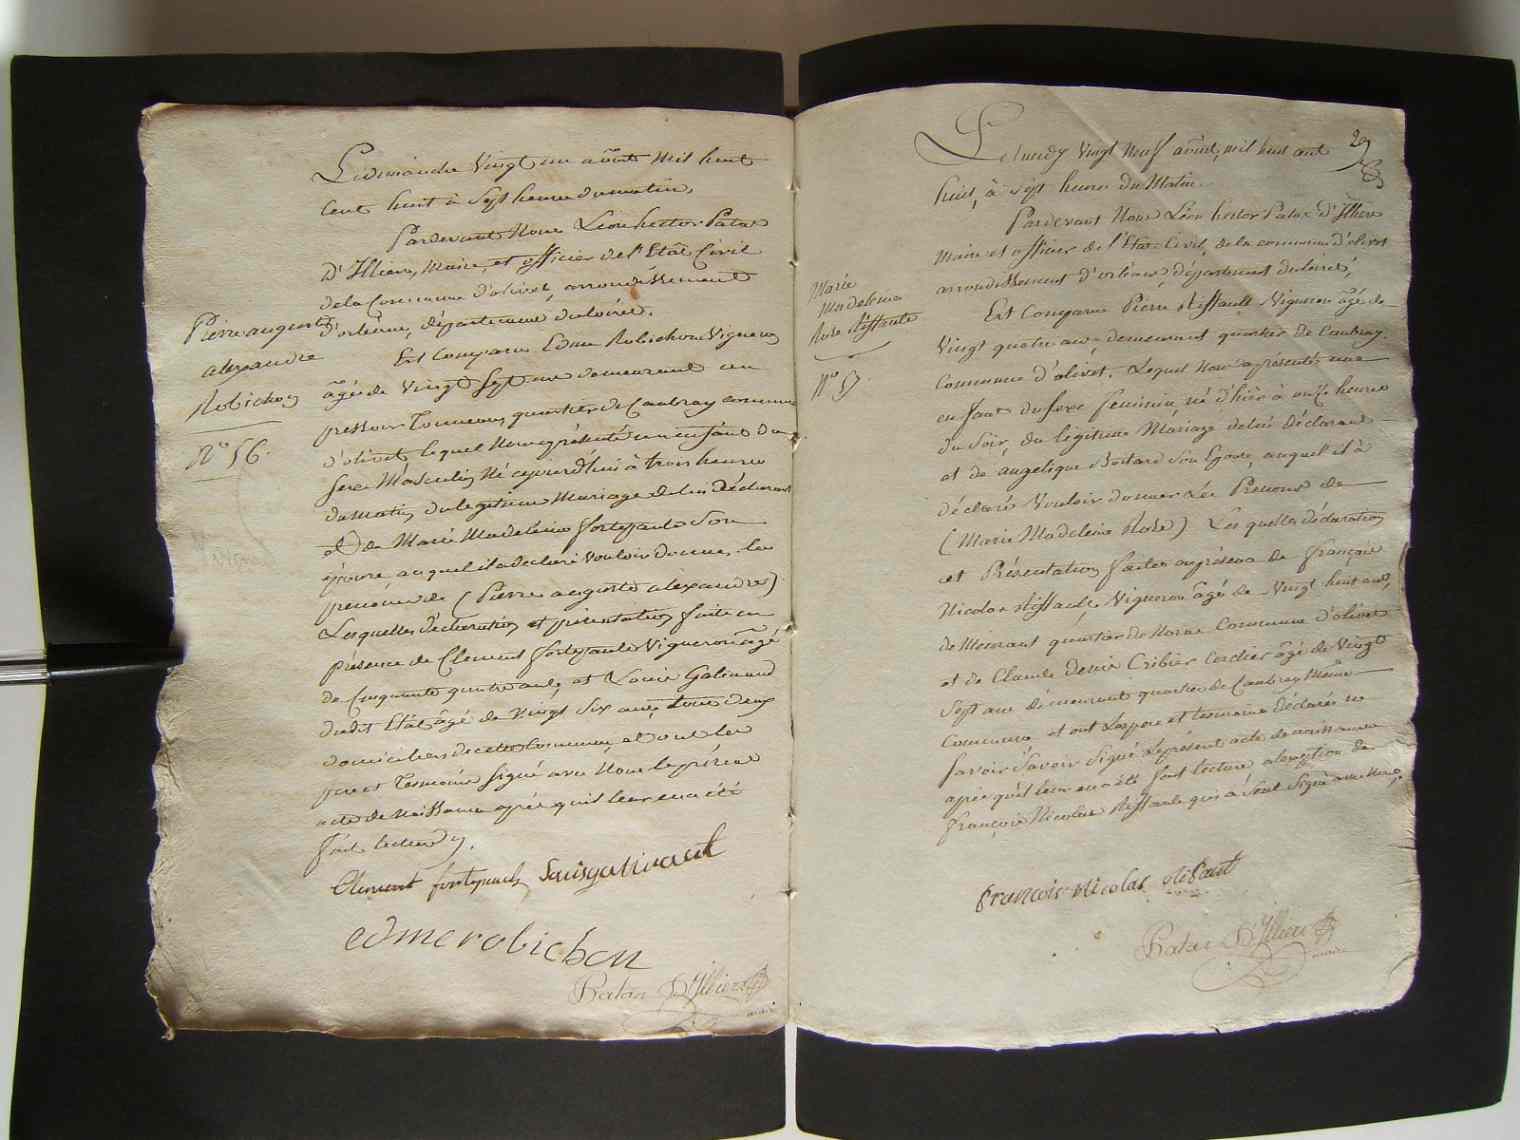 Pierre auguste
alexandre
Robichon
N.o 56.
Le dimanche Vingt un aoust mil huit
Cent huit à Sept heures du matin,
Pardevant Nous Léon hector Patas
D'Illiers, Maire, et officier de l'Etât Civil
de la Commune d'olivet, arrondissement
d'orléans, département du loiret.
Est Comparu Edme Robichon Vigneron
âgé de Vingt Sept ans demeurant au
pressoir Tonneau, quartier de Caubray commune
d'olivet, lequel Nous a présenté un enfant du
Sexe Masculin, Né cejourd'hui à trois heures
du Matin, du legitime Mariage de lui Déclarant
et de Marie Madeleine fortepaule Son
épouse, auquel il a declaré vouloir donner les
prénoms de (Pierre auguste alexandre)
Lesquelles déclaration et présentation faite en
présence de Clement fortepaule Vigneron âgé
de Cinquante quatre ans, et Louis Galinand
dudit Etât âgé de Vingt Six ans, tous deux
domiciliés de cette Commune, et ont les
pere et Temoins signé avec Nous le présent
acte de Naissance après qu'il leur en a été
fait lecture.
Clement fortepaule
edme robichon
Patas D'Illiers
maire
29
Marie
Madeleine
Rose Riffault
N.o 57.
Le lundy Vingt Neuf aoust, mil huit cent
huit, à Sept heures du Matin.
Pardevant Nous Léon hector Patas D'Illiers
Maire et officier de l'Etât-Civil, de la commune d'olivet
arrondissement d'orléans, département du loiret,
Est Comparu Pierre Riffault Vigneron âgé de
Vingt quatre ans, demeurant quartier de Caubray
Commune d'olivet, Lequel Nous a présenté une
enfant du Sexe feminin, né d'hier à onze heures
du Soir, du légitime Mariage de lui Déclarant
et de angelique Boitard Son Epouse, auquel il à
déclaré Vouloir donner Les Prenoms de
(Marie Madeleine Rose) Lesquelles déclaration
et Présentation faites en présence de françois
Nicolas Riffault, Vigneron âgé de Vingt huit ans,
demeurant quartier de Commune d'olivet
et de Claude denis Cribier Cordier âgé de Vingt
Sept ans demeurant quartier de Caubray Même
Commune et ont Les pere et temoins déclarés ne
Savoir Signé le présent acte de naissance
après qu'il leur en a été fait lecture a l'exeption de
françois Nicolas Riffault qui à Seul Signé avec Nous.
françois nicolas rifaut
Patas D'Illiers
maire